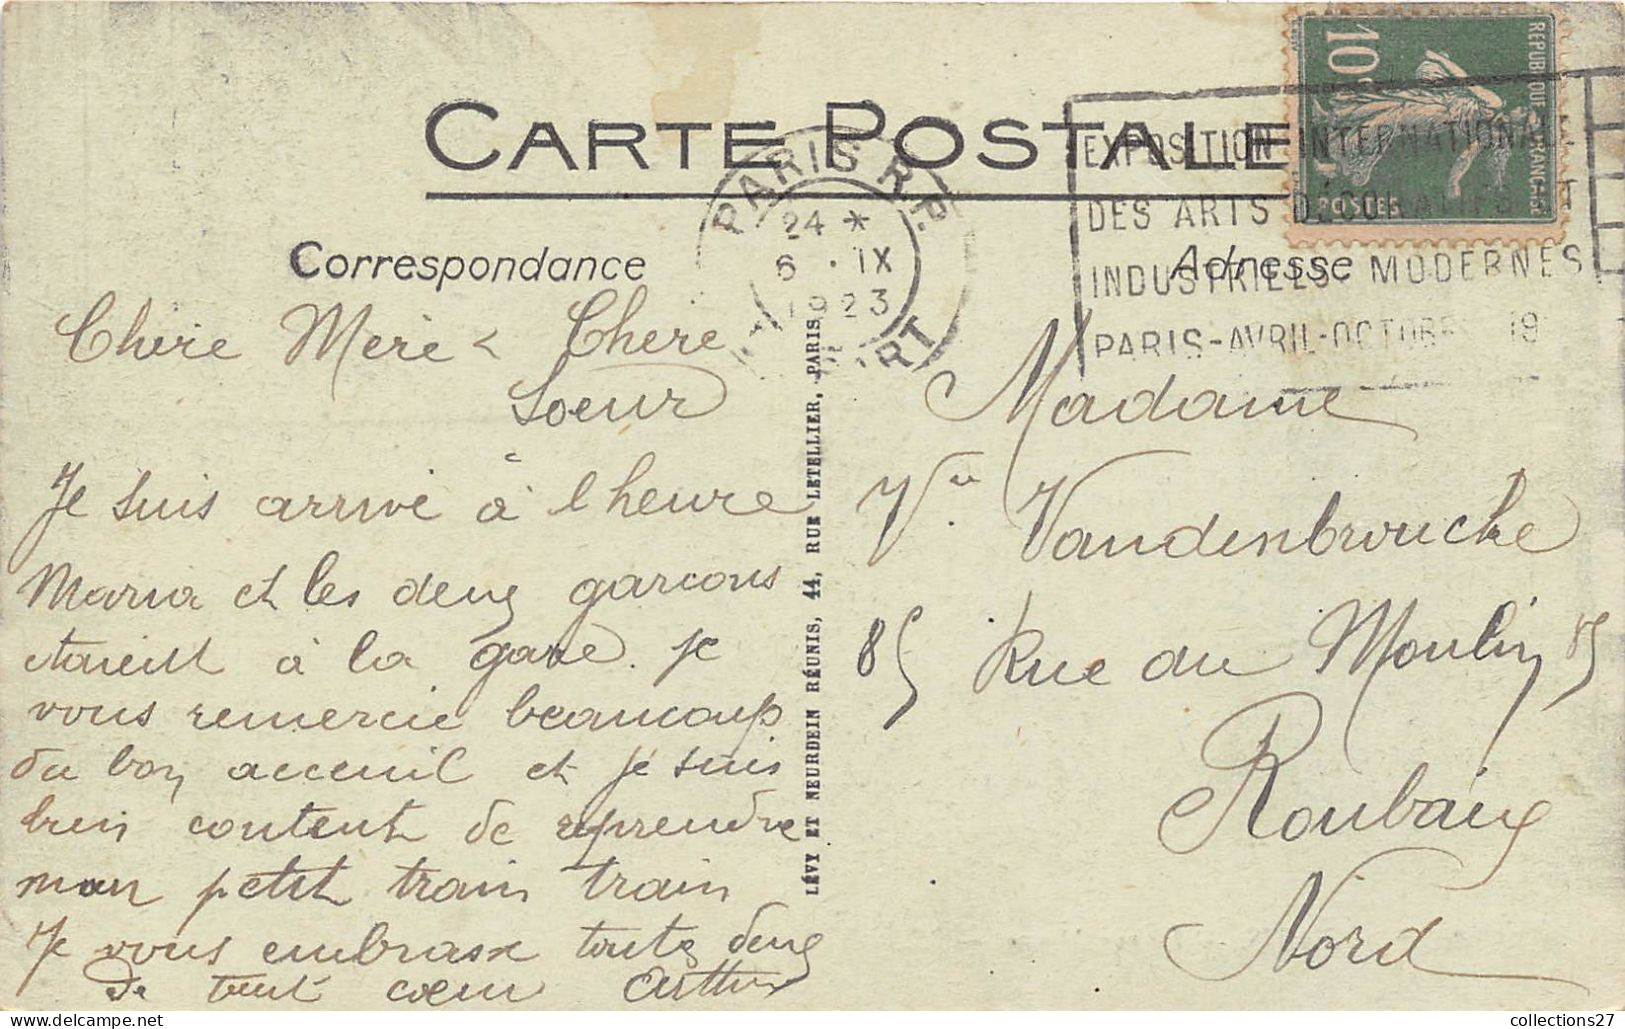 CARTE POSTALE
REPUBLIQUE FRANÇAISE
10c
POSTES
PARIS R.P.
24 *
6 . IX
1923
EXPOSITION INTERNATIONALE
DES ARTS DÉCORATIFS ET
INDUSTRIELLES MODERNES
PARIS-AVRIL-OCTOBRE 19
Correspondance
Chère Mère & Chere
Soeur
Je suis arrivé à l heure
Maria et les deux garcons
étaient à la gare. Je
vous remercie beaucoup
du bon acceuil et je suis
bien content de reprendre
mon petit train train
Je vous embrasse toutes deux
de tout coeur Arthur
LÉVY ET NEURDEIN RÉUNIS, 44, RUE LETELLIER, PARIS
Adresse
Madame
Vve Vandenbroucke
85 Rue du Moulin 85
Roubaix
Nord
collections27